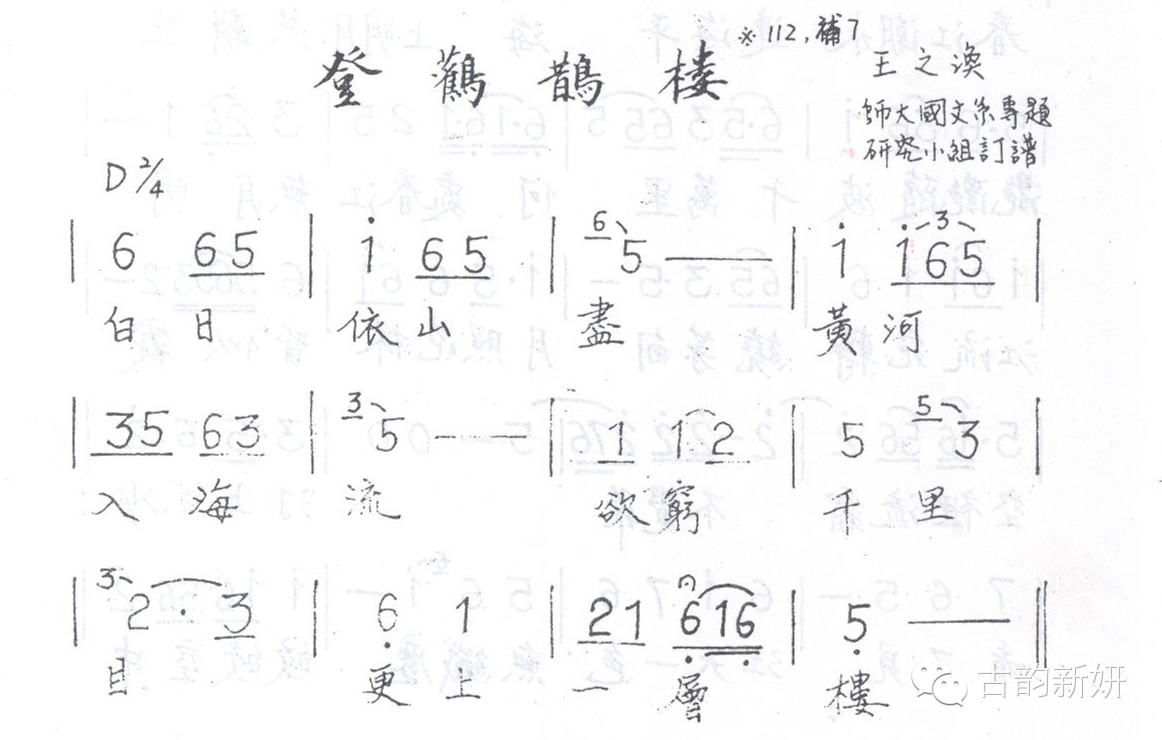 登鸛鵲樓
※112,補7
王之渙
師大國文系專題
研究小組訂譜
D 2/4
| 6 65 | i 65 | 6 5 — | i i65 3 |
白日 依山 盡 黃河
| 35 63 | 3 5 — — | 1 1 2 | 5 5 3 |
入海 流 欲窮 千里
| 3 2 · 3 | 6 1 | 21 616 | 5 — ||
目 更上 一層 樓
古韵新妍